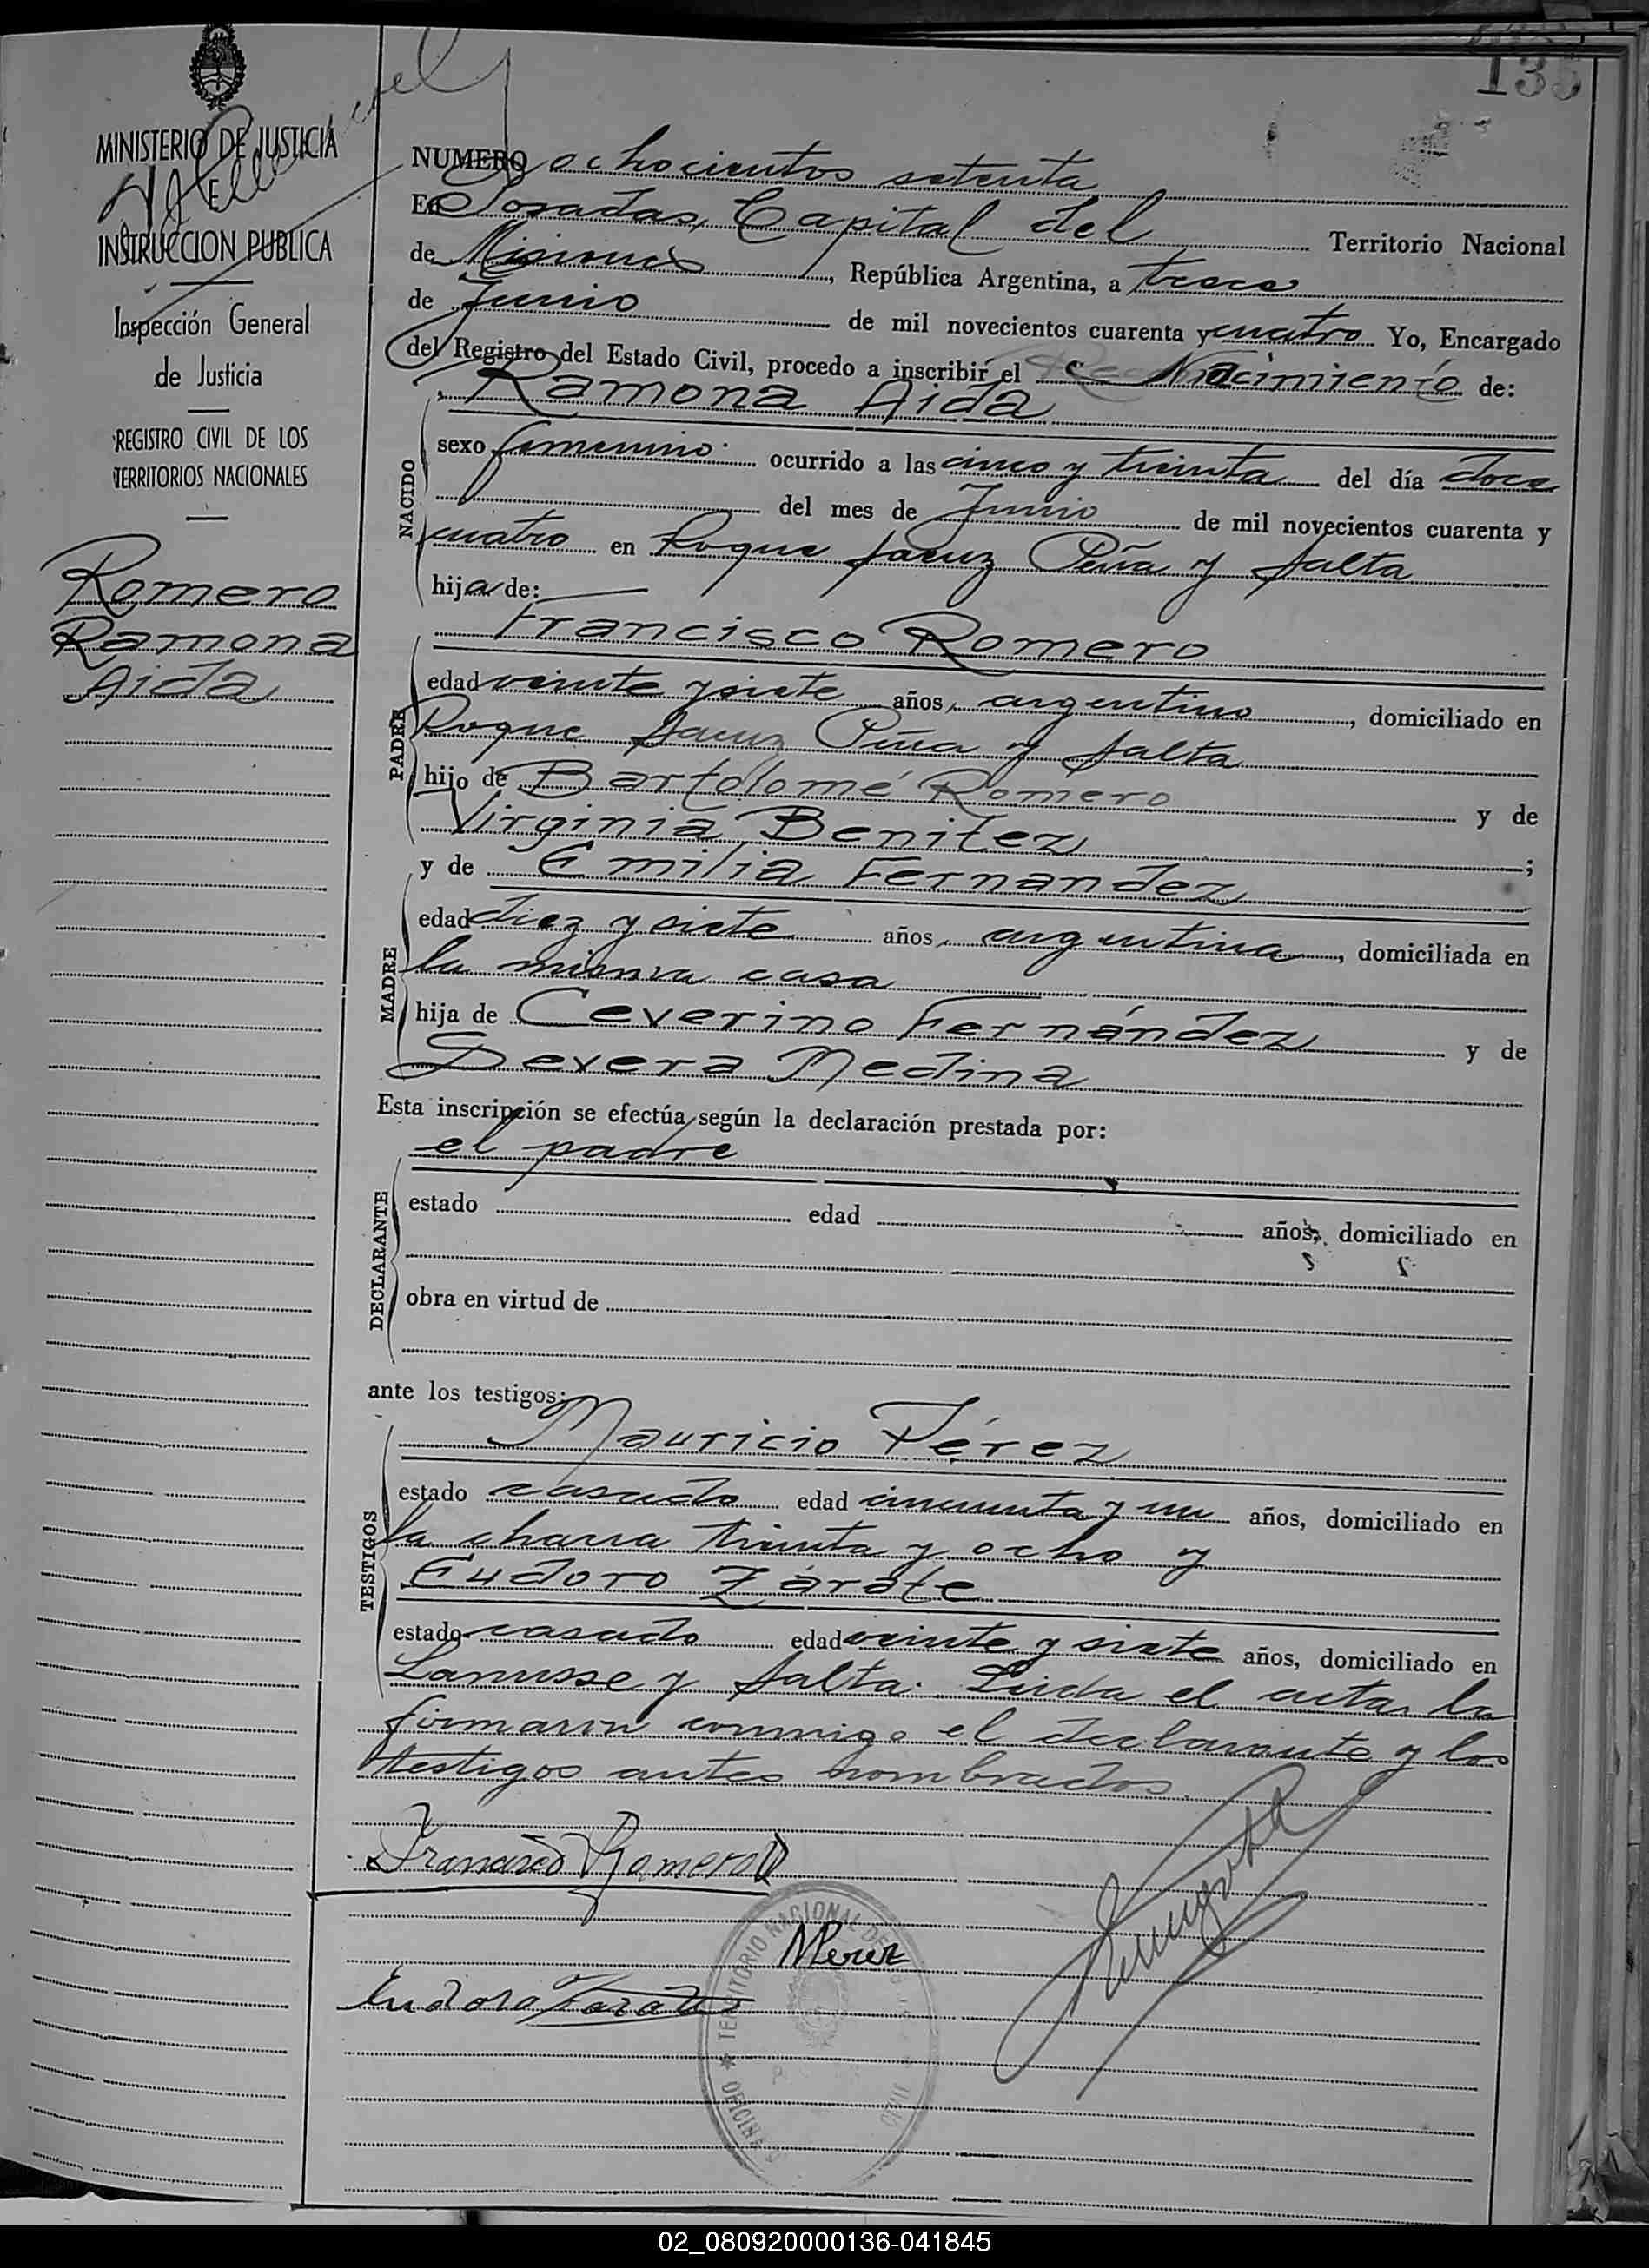 135
MINISTERIO DE JUSTICIA
E
INSTRUCCION PUBLICA
Inspección General
de Justicia
REGISTRO CIVIL DE LOS
TERRITORIOS NACIONALES
Romero
Ramona
Aida
NUMERO ochocientos setenta
En Posadas, Capital del Territorio Nacional
de Misiones, República Argentina, a trece
de Junio de mil novecientos cuarenta y cuatro Yo, Encargado
del Registro del Estado Civil, procedo a inscribir el Nacimiento de:
Ramona Aida
NACIDO
sexo femenino ocurrido a las cinco y treinta del día doce
del mes de Junio de mil novecientos cuarenta y
cuatro en Roque Saenz Peña y Salta
hija de:
Francisco Romero
PADRE
edad veinte y siete años, argentino, domiciliado en
Roque Saenz Peña y Salta
hijo de Bartolomé Romero y de
Virginia Benitez;
y de Emilia Fernandez
MADRE
edad diez y siete años, argentina, domiciliada en
la misma casa
hija de Ceverino Fernández y de
Severa Medina
Esta inscripción se efectúa según la declaración prestada por:
el padre
DECLARANTE
estado edad años, domiciliado en
obra en virtud de
ante los testigos:
Mauricio Pérez
TESTIGOS
estado casado edad cincuenta y un años, domiciliado en
la chacra treinta y ocho y
Eudoro Zárate
estado casado edad veinte y siete años, domiciliado en
Lanusse y Salta. Leida el acta, la
firmaron conmigo el declarante y los
testigos antes nombrados.
Francisco Romero
MPerez
Eudoro Zarate
TERRITORIO NACIONAL DE
OFICINA
CIVIL
02_080920000136-041845